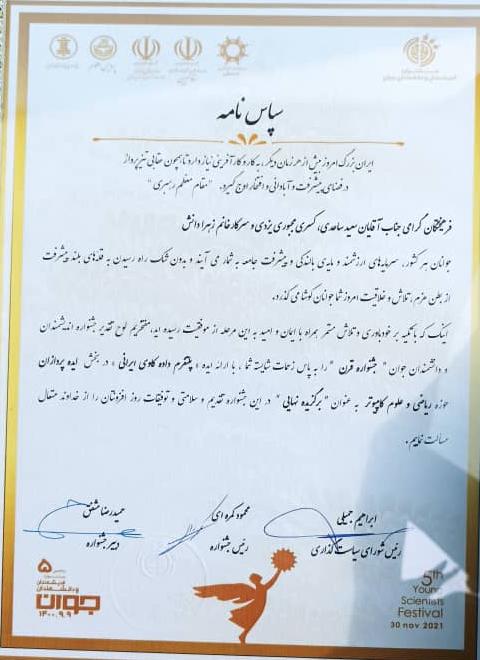 سپاس نامه
ایران بزرگ امروز بیش از هر زمان دیگر، به کار و کارآفرینی نیاز دارد تا همچون عقابی تیزپرواز
در فضای پیشرفت و آبادانی و افتخار اوج گیرد. "مقام معظم رهبری"
فرهیختگان گرامی جناب آقایان سعید ساعدی، کسری مجبوری یزدی و سرکار خانم زهرا دانش
جوانان هر کشور، سرمایه‌های ارزشمند و مایه‌ی بالندگی و پیشرفت جامعه به شمار می آیند و بدون شک راه رسیدن به قله‌های بلند پیشرفت
از بطن عزم، تلاش و خلاقیت امروز شما جوانان کوشا می گذرد.
اینک که با تکیه بر خودباوری و تلاش مستمر همراه با ایمان و امید به این مرحله از موفقیت رسیده اید، مفتخریم لوح تقدیر جشنواره اندیشمندان
و دانشمندان جوان "جشنواره قرن" را به پاس زحمات شایسته شما، با ارائه ایده «پلتفرم داده کاوی ایرانی» در بخش ایده پردازان
حوزه ریاضی و علوم کامپیوتر به عنوان "برگزیده نهایی" در این جشنواره تقدیم و سلامتی و توفیقات روز افزونتان را از خداوند متعال
مسالت نماییم.
ابراهیم جمیلی
رئیس شورای سیاست گذاری
محمود کمره ای
رئیس جشنواره
حمیدرضا شفق
دبیر جشنواره
۵
اندیشمندان
و دانشمندان
جوان
۱۴۰۰.۹.۹
5th
Young
Scientists
Festival
30 nov 2021